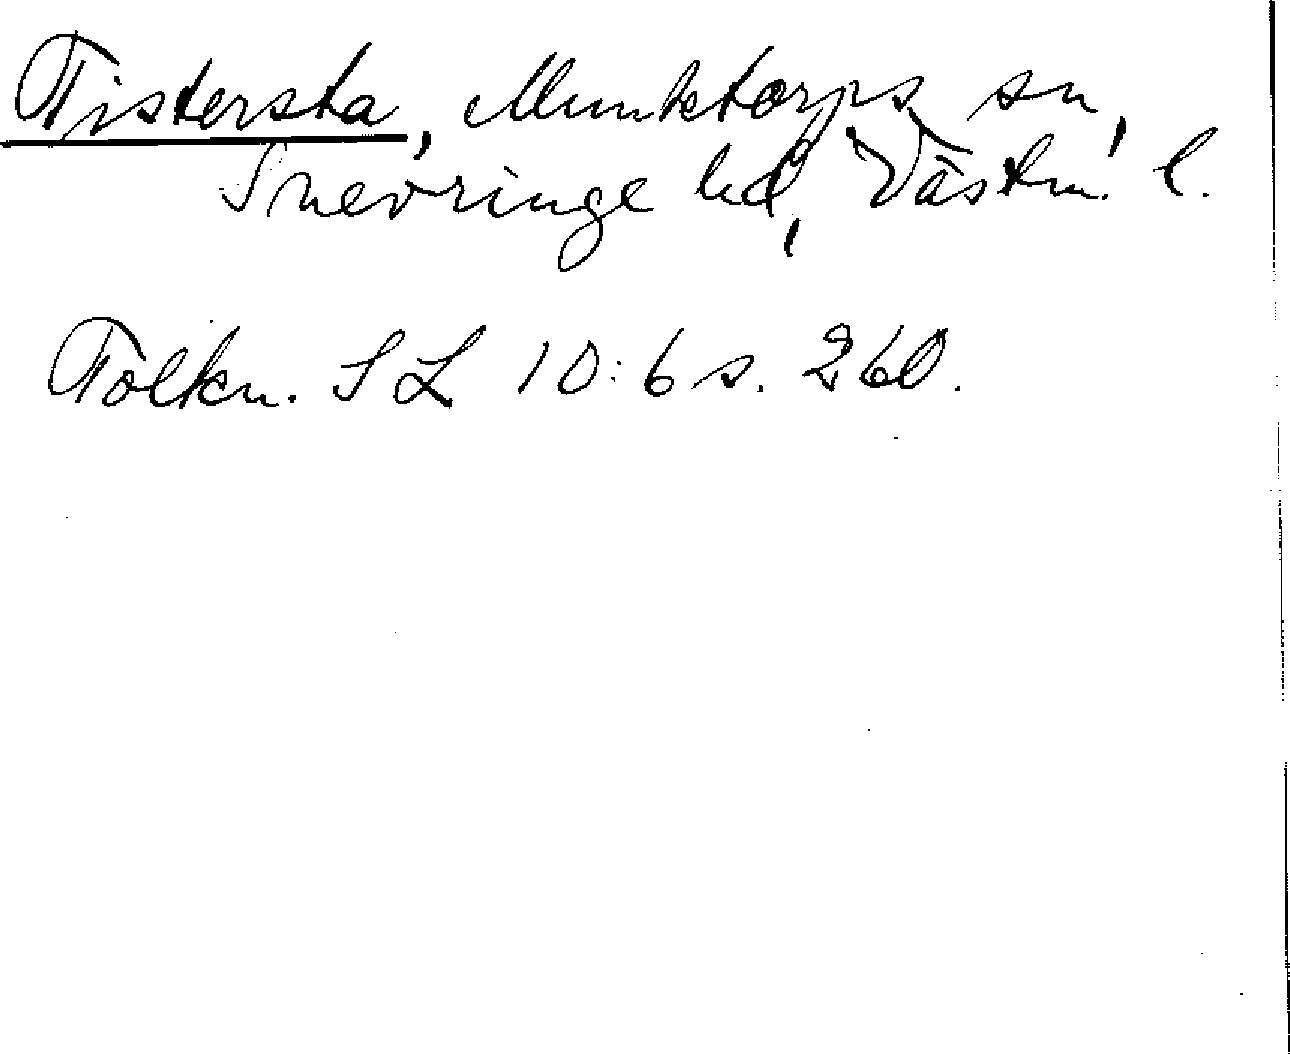 Tistersta, Munktorps sn,
Snevringe hd, Västm. l.
Tolkn. SL 10:6 s. 260.